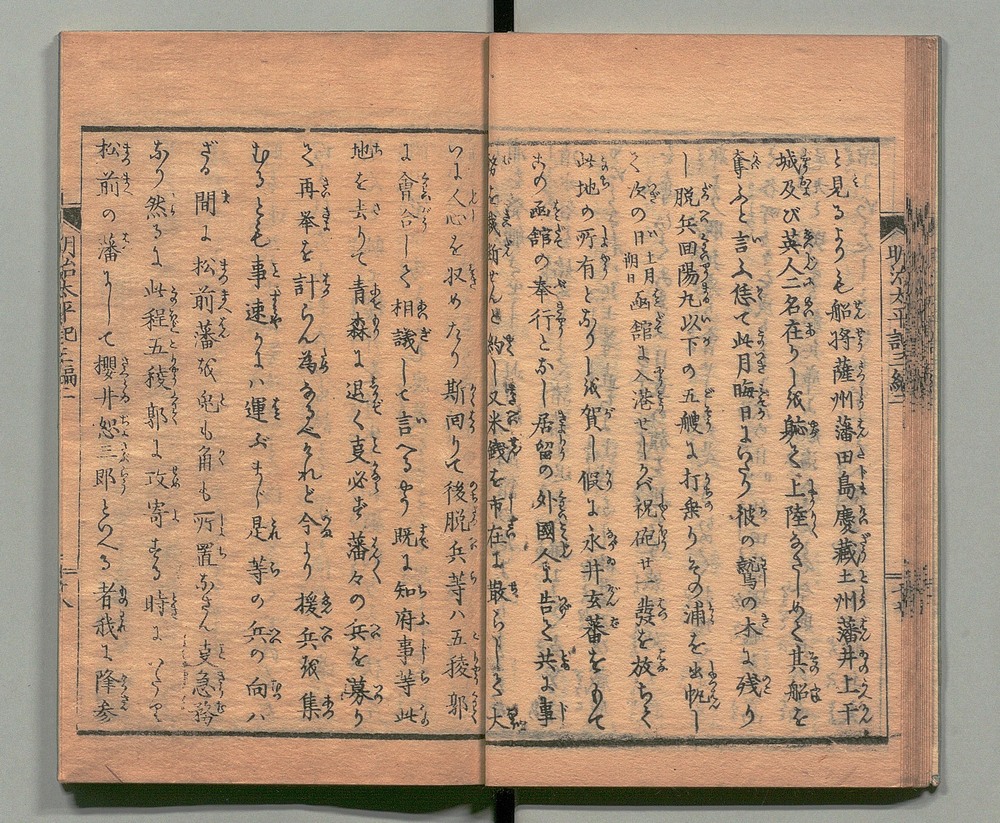 と見るよりも船将薩州藩田島慶蔵土州藩井上干
城及び英人二名在りしを頓て上陸なさしめて其船を
奪ふと言ふ偖て此月晦日にいたり彼の鷲の木に残り
し脱兵回陽丸以下の五艘に打乗りその浦を出帆し
て次の日十一月朔日函館に入港せしかバ祝砲廿一発を放ちて
此地の所有となりしを賀し假に永井玄蕃をもて
この函館の奉行となし居留の外國人に告て共に事
務を裁断せんと約し又米銭を市在に散らして大
いに人心を収めたり斯回りて後脱兵等ハ五稜郭
に會合して相議して言へるやう既に知府事等此
地を去りて青森に退く上必ず藩々の兵を募り
て再挙を計らん為なるべけれど今より援兵を集
むるとも事速かにハ運ぶまじ是等の兵の向ハ
ざる間に松前藩を兎も角も所置なさん事急務
なり然るに此程五稜郭に攻寄する時に
松前の藩にして櫻井恕三郎といへる者我に降参
明治太平記三編一
明治太平記三編一